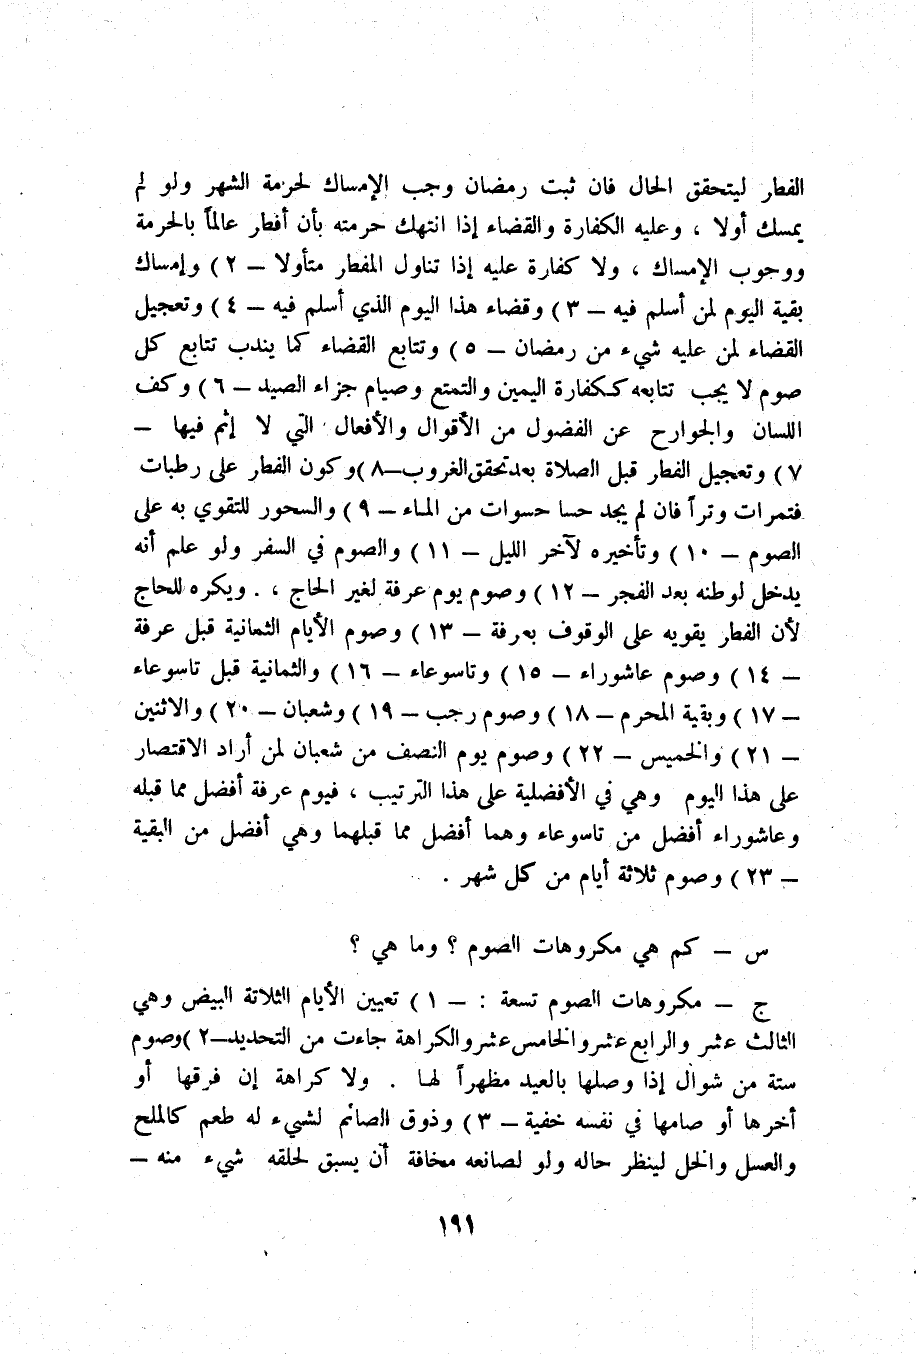 الفطر ليتحقق الحال فان ثبت رمضان وجب الإمساك لحرمة الشهر ولو لم
يمسك أولا ، وعليه الكفارة والقضاء إذا انتهك حرمته بأن أفطر عالماً بالحرمة
ووجوب الإمساك ، ولا كفارة عليه إذا تناول المفطر متأولا – ٢ ) وإمساك
بقية اليوم لمن أسلم فيه – ٣ ) وقضاء هذا اليوم الذي أسلم فيه – ٤ ) وتعجيل
القضاء لمن عليه شيء من رمضان – ٥ ) وتتابع القضاء كما يندب تتابع كل
صوم لا يجب تتابعه ككفارة اليمين والتمتع وصيام جزاء الصيد – ٦ ) وكف
اللسان والجوارح عن الفضول من الأقوال والأفعال التي لا إثم فيها –
٧ ) وتعجيل الفطر قبل الصلاة بعد تحقق الغروب – ٨ ) وكون الفطر على رطبات
فتمرات وتراً فان لم يجد حسا حسوات من الماء – ٩ ) والسحور للتقوي به على
الصوم – ١٠ ) وتأخيره لآخر الليل – ١١ ) والصوم في السفر ولو علم أنه
يدخل لوطنه بعد الفجر – ١٢ ) وصوم يوم عرفة لغير الحاج ، . ويكره للحاج
لأن الفطر يقويه على الوقوف بعرفة – ١٣ ) وصوم الأيام الثمانية قبل عرفة
– ١٤ ) وصوم عاشوراء – ١٥ ) وتاسوعاء – ١٦ ) والثمانية قبل تاسوعاء
– ١٧ ) وبقية المحرم – ١٨ ) وصوم رجب – ١٩ ) وشعبان – ٢٠ ) والاثنين
– ٢١ ) والخميس – ٢٢ ) وصوم يوم النصف من شعبان لمن أراد الاقتصار
على هذا اليوم وهي في الأفضلية على هذا الترتيب ، فيوم عرفة أفضل مما قبله
وعاشوراء أفضل من تاسوعاء وهما أفضل مما قبلهما وهي أفضل من البقية
– ٢٣ ) وصوم ثلاثة أيام من كل شهر .
س – كم هي مكروهات الصوم ؟ وما هي ؟
ج – مكروهات الصوم تسعة : – ١ ) تعيين الأيام الثلاثة البيض وهي
الثالث عشر والرابع عشر والخامس عشر والكراهة جاءت من التحديد – ٢ ) وصوم
ستة من شوال إذا وصلها بالعيد مظهراً لها . ولا كراهة إن فرقها أو
أخرها أو صامها في نفسه خفية – ٣ ) وذوق الصائم لشيء له طعم كالملح
والعسل والخل لينظر حاله ولو لصانعه مخافة أن يسبق لحلقه شيء منه –
١٩١